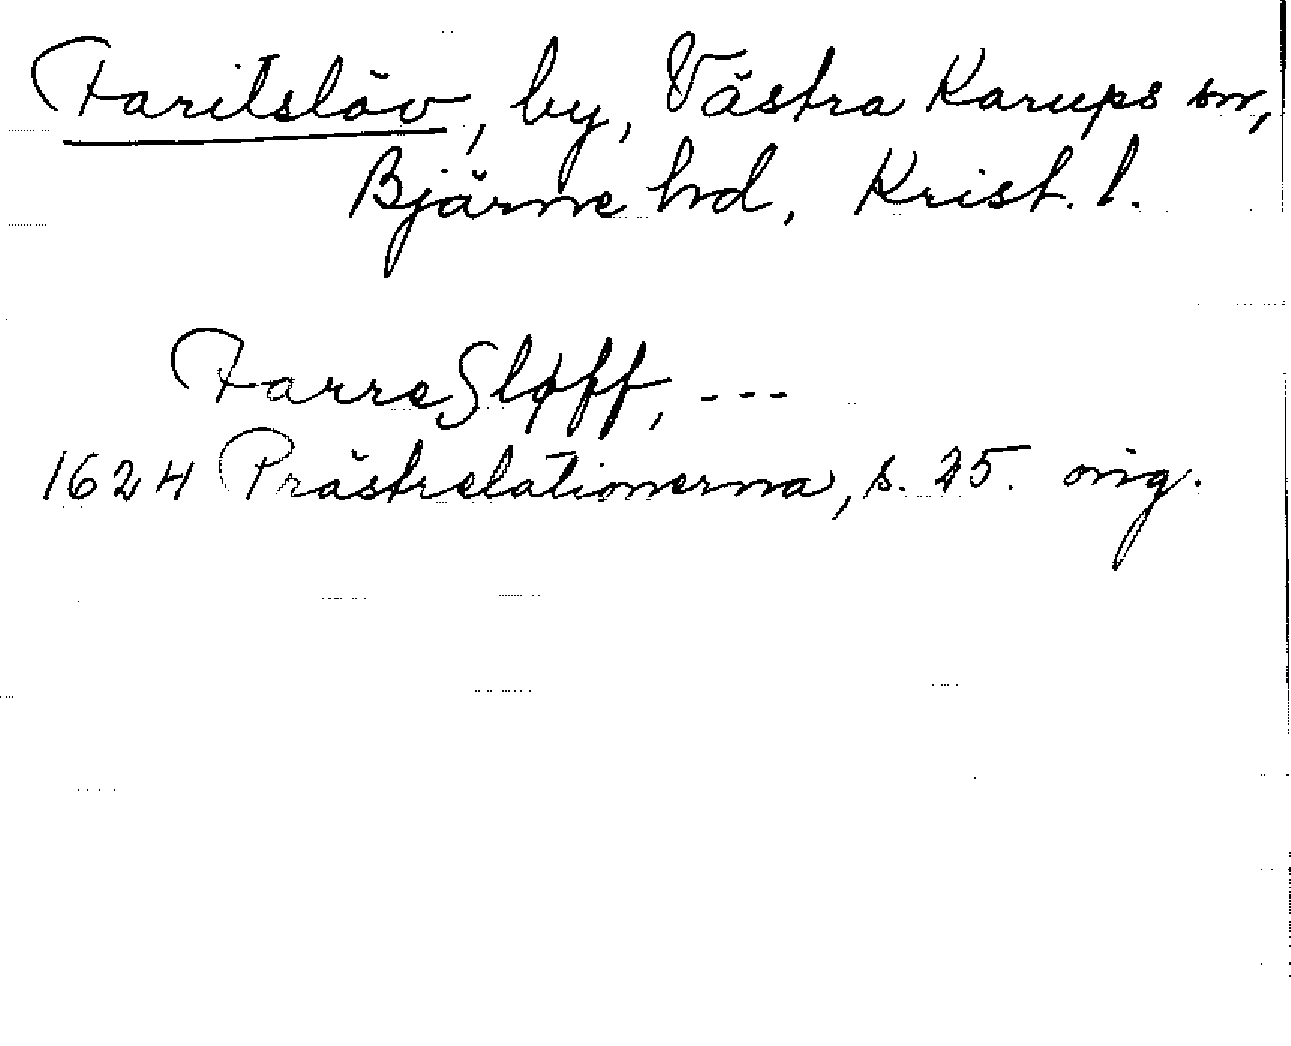 Faritslöv, by, Västra Karups sn,
Bjärne hd, Krist. l.
FarreSløff, ---
1624 Prästrelationerna, s. 25. orig.